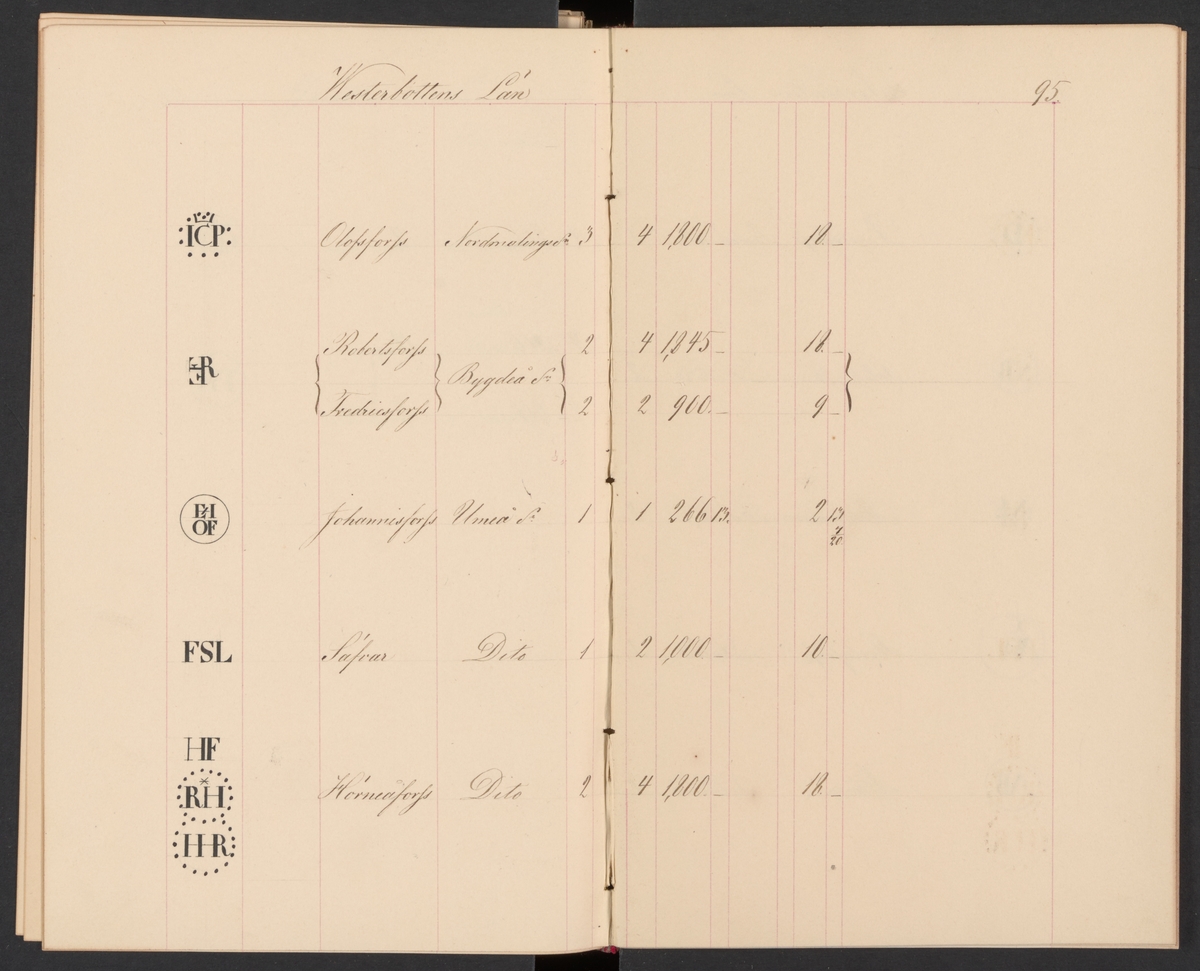 Westerbottens Län 95.
ICP Olofsforss Nordmalings Sn 3 4 1,800 – 18 –
Robertsforss 2 4 1,845 – 18 –
FR Bygdeå Sn
Fredricsforss 2 2 900 – 9 –
OF Johannisforss Umeå Sn 1 1 266 13. 2 13
7
20
FSL Säfvar Dito 1 2 1,000 – 10 –
HF
RH Hörneåforss Dito 2 4 1,800 – 18 –
HR